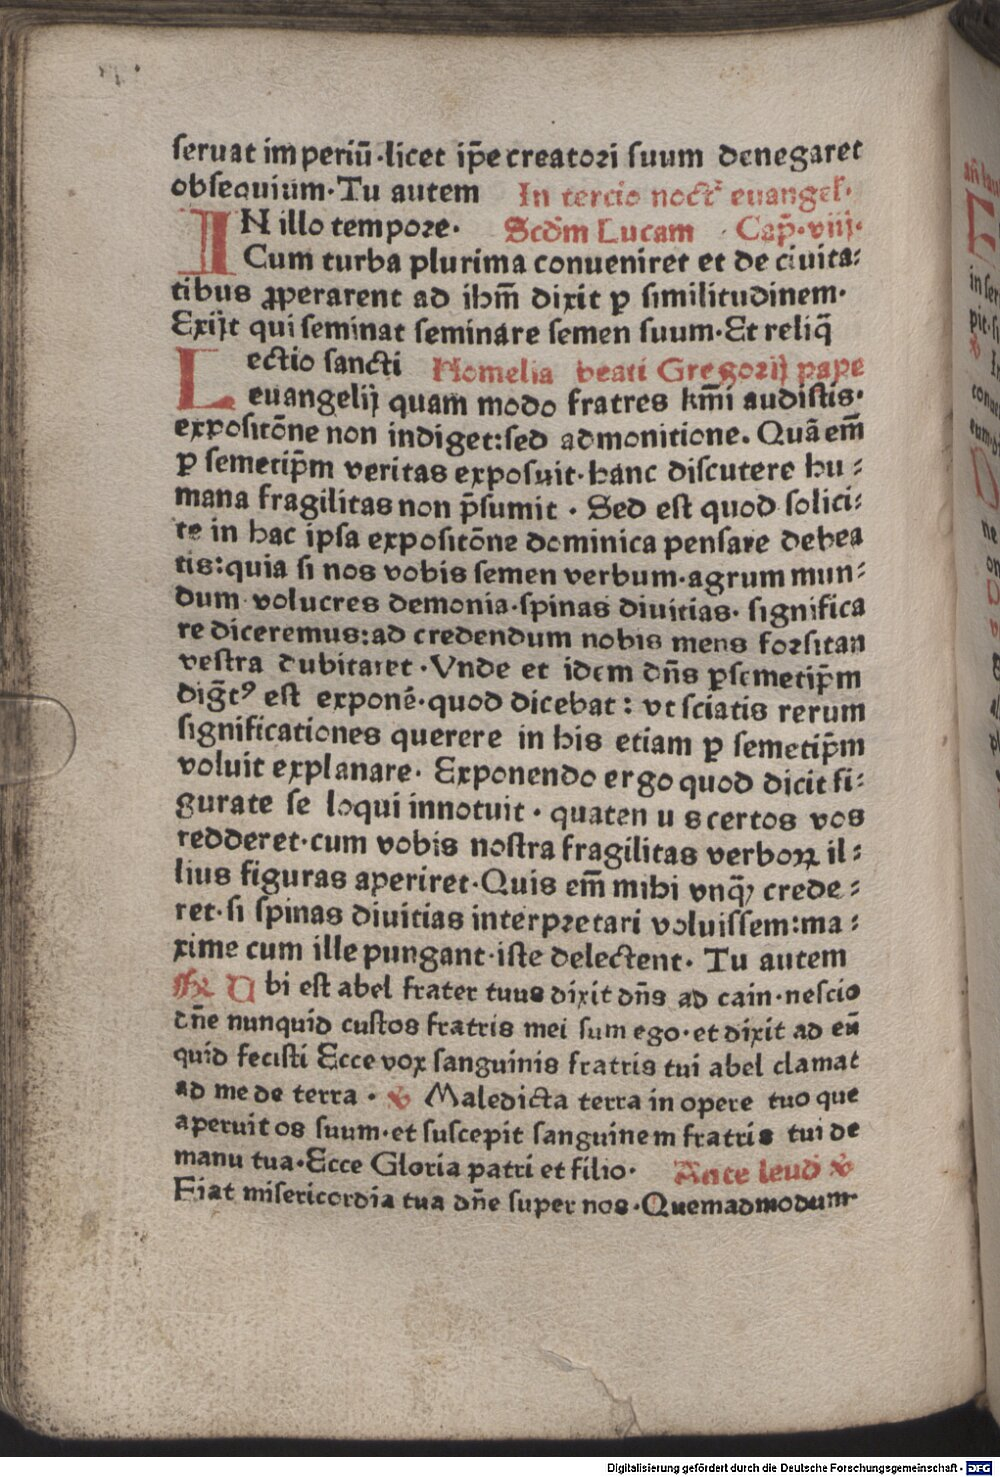 ſeruat imperiū·licet ip̄e creatoꝛi ſuum denegaret
obſequium·Tu autem In tercio noct᷒ euangel·
IN illo tempoꝛe· Scd̄m Lucam Cap̄·viij·
Cum turba plurima conueniret et de ciuita:
tibus ꝓperarent ad ihm̄ dixit ꝑ ſimilitudinem·
Exijt qui ſeminat ſeminare ſemen ſuum·Et reliq̄
Lectio ſancti Homelia beati Gregoꝛij pape
euangelij quam modo fratres km̄i audiſtis·
expoſitōne non indiget:ſed admonitione. Quā em̄
ꝑ ſemetip̄m veritas expoſuit·hanc diſcutere hu:
mana fragilitas non p̄ſumit · Sed eſt quod ſolici:
te in hac ipſa expoſitōne dominica penſare debea
tis:quia ſi nos vobis ſemen verbum·agrum mun:
dum volucres demonia·ſpinas diuitias· ſignifica
re diceremus:ad credendum nobis mens foꝛſitan
veſtra dubitaret·Vnde et idem dn̄s ꝑſemetip̄m
dig̃tꝰ eſt exponē·quod dicebat: vt ſciatis rerum
ſignificationes querere in his etiam ꝑ ſemetip̄m
voluit explanare· Exponendo ergo quod dicit fi:
gurate ſe loqui innotuit · quaten u s certos vos
redderet·cum vobis noſtra fragilitas verboꝝ il:
lius figuras aperiret·Quis em̄ mihi vnq̄ꝫ crede:
ret·ſi ſpinas diuitias interpꝛetari voluiſſem:ma:
xime cum ille pungant·iſte delectent· Tu autem
R̄ Ubi eſt abel frater tuus dixit dn̄s ad cain·neſcio
dn̄e nunquid cuſtos fratris mei ſum ego·et dixit ad eū
quid feciſti Ecce vox ſanguinis fratris tui abel clamat
ad me de terra · ꝟ Maledicta terra in opere tuo que
aperuit os ſuum·et ſuſcepit ſanguinem fratris tui de
manu tua·Ecce Gloria patri et filio· Ante leud ꝟ
Fiat miſericordia tua dn̄e ſuper nos·Quemadmodum·
Digitalisierung gefördert durch die Deutsche Forschungsgemeinschaft - DFG